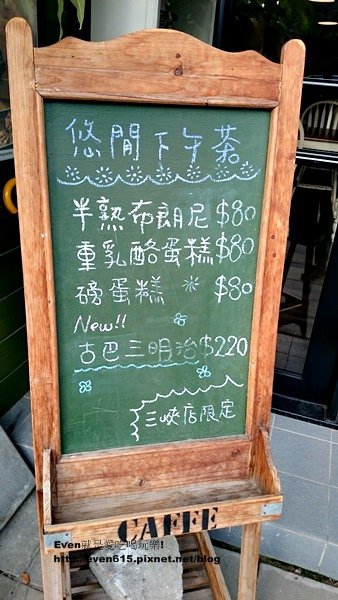 悠閒下午茶
半熟布朗尼 $80
重乳酪蛋糕 $80
磅蛋糕 $80
New!!
古巴三明治 $220
三峽店限定
CAFFE
Even就是愛吃喝玩樂!
http://even615.pixnet.net/blog